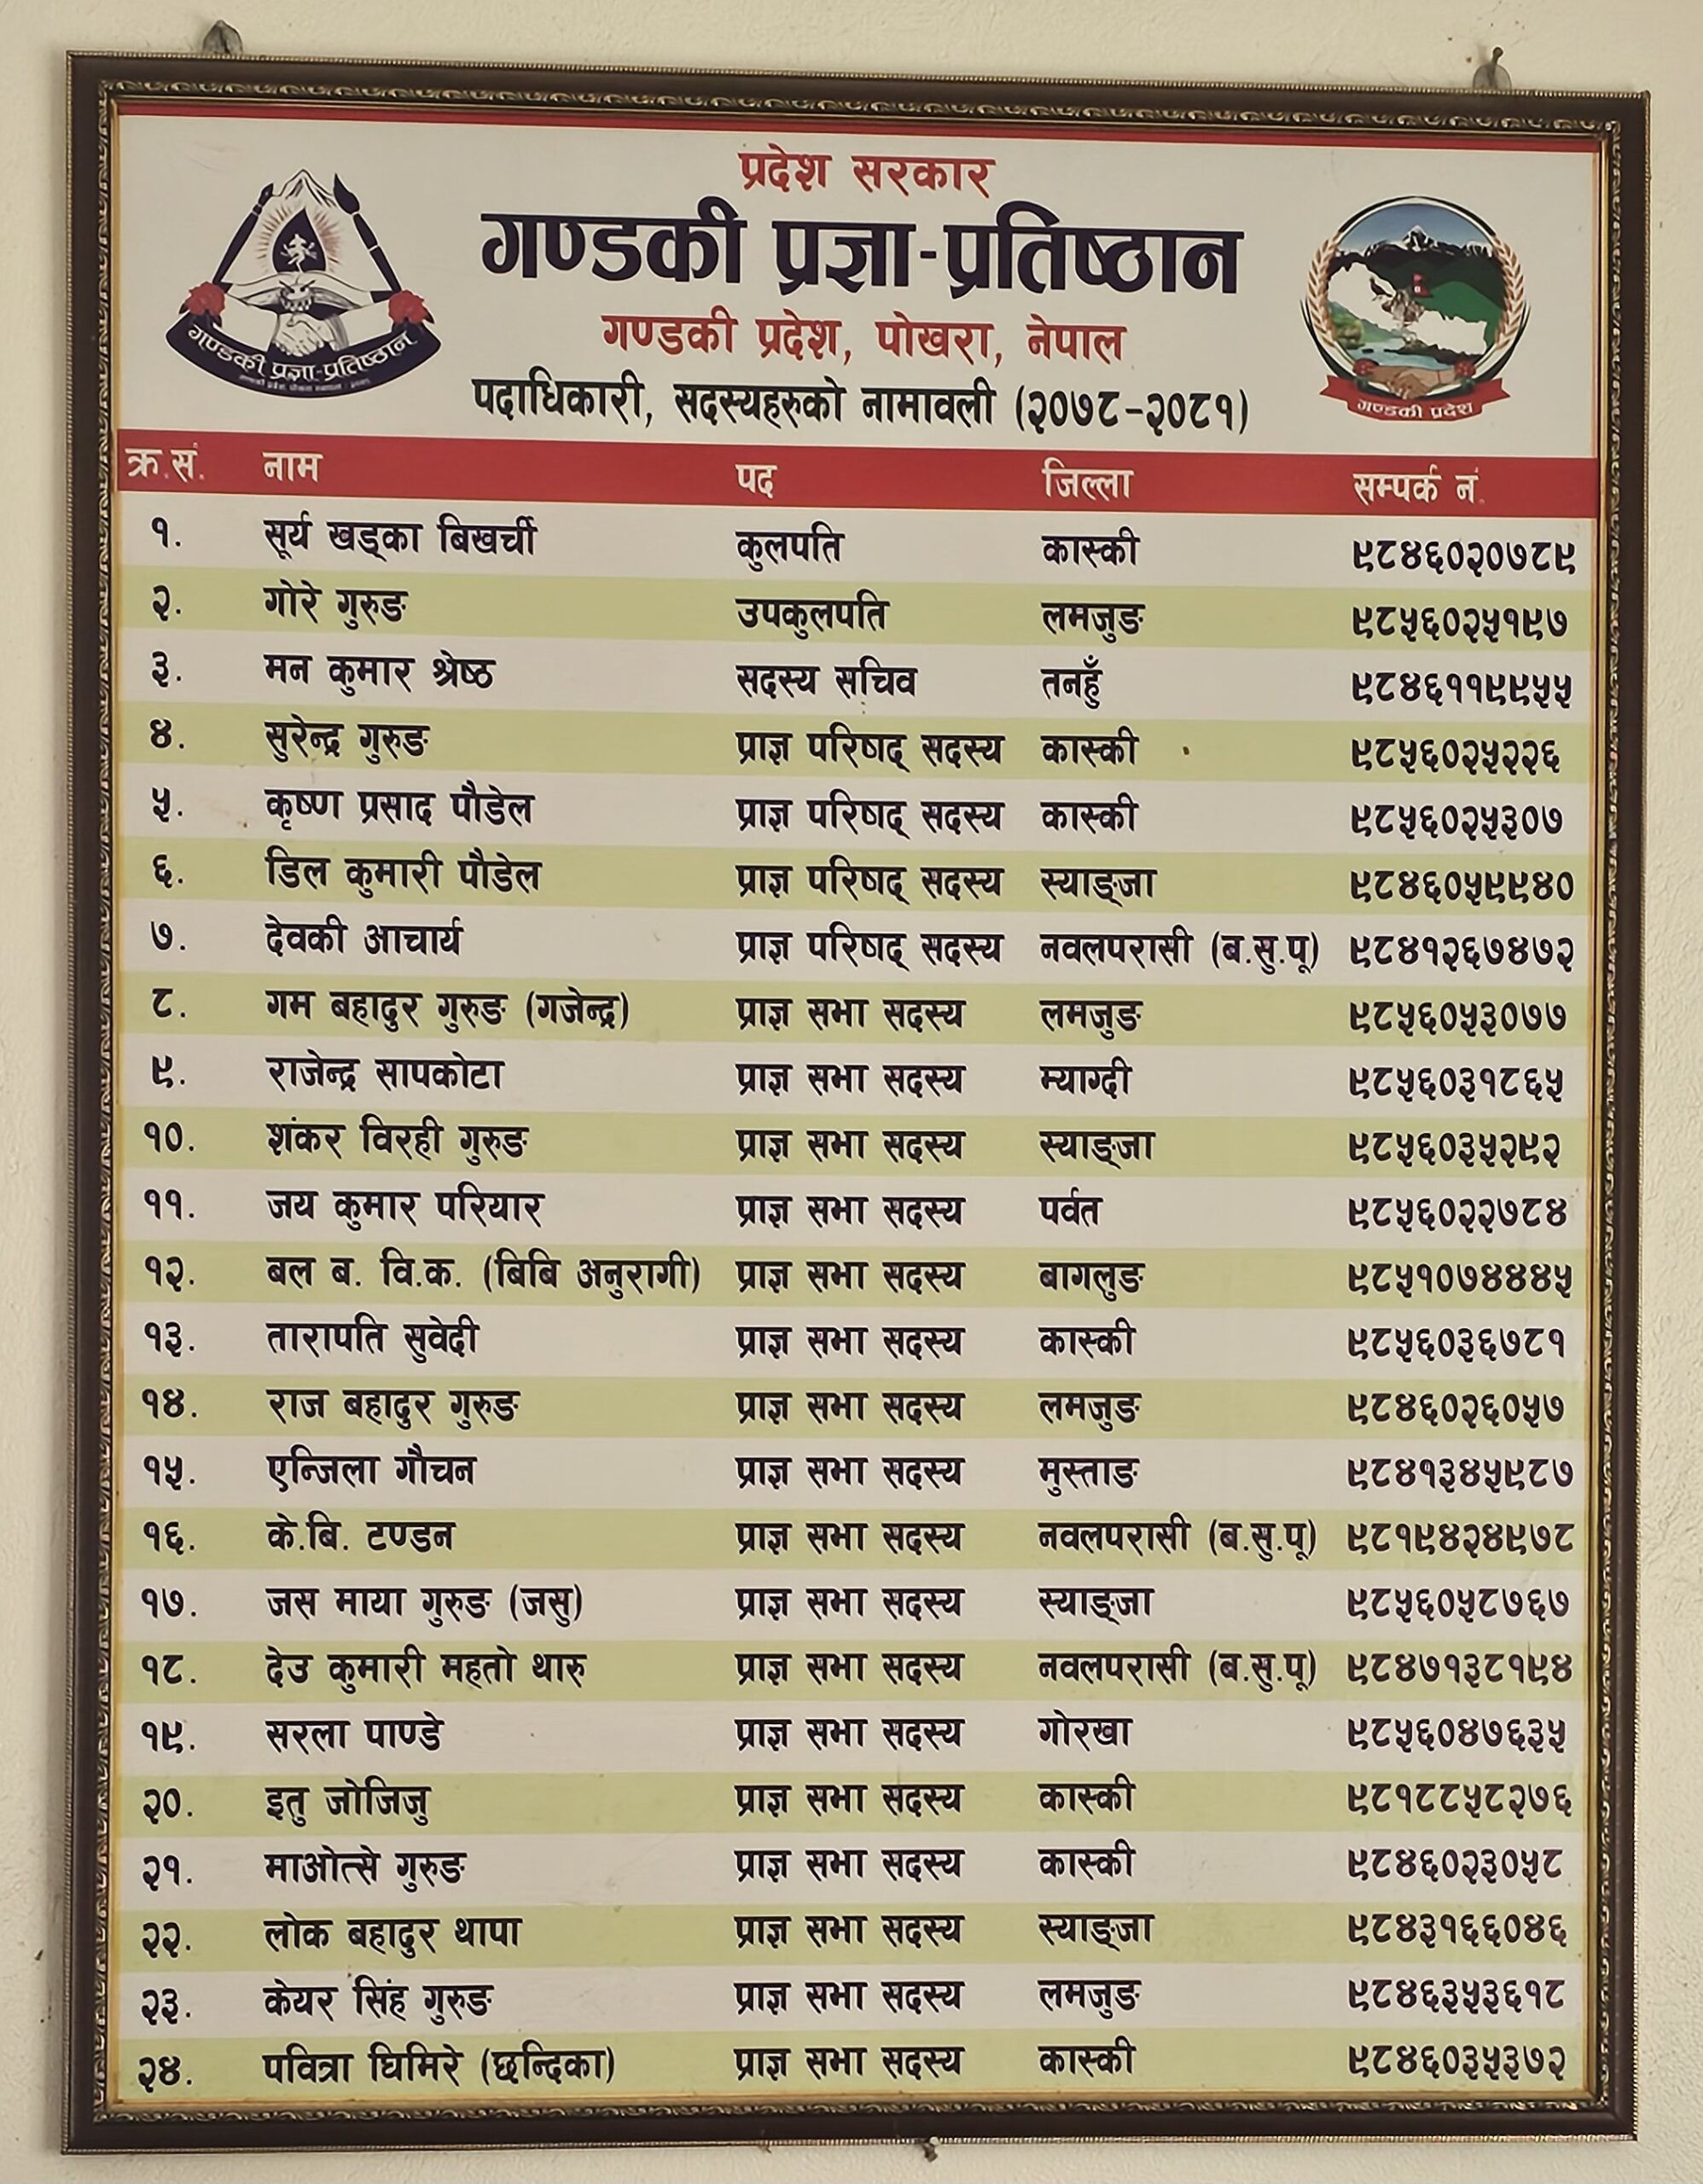 प्रदेश सरकार
गण्डकी प्रज्ञा-प्रतिष्ठान
गण्डकी प्रदेश, पोखरा, नेपाल
पदाधिकारी, सदस्यहरुको नामावली (२०७८-२०८१)
गण्डकी प्रज्ञा-प्रतिष्ठान
गण्डकी प्रदेश
क्र.सं. नाम पद जिल्ला सम्पर्क नं.
१. सूर्य खड्का बिखर्ची कुलपति कास्की ९८४६०२०७८९
२. गोरे गुरुङ उपकुलपति लमजुङ ९८५६०२५१९७
३. मन कुमार श्रेष्ठ सदस्य सचिव तनहुँ ९८४६११९९५५
४. सुरेन्द्र गुरुङ प्राज्ञ परिषद् सदस्य कास्की ९८५६०२५२२६
५. कृष्ण प्रसाद पौडेल प्राज्ञ परिषद् सदस्य कास्की ९८५६०२५३०७
६. डिल कुमारी पौडेल प्राज्ञ परिषद् सदस्य स्याङ्जा ९८४६०५९९४०
७. देवकी आचार्य प्राज्ञ परिषद् सदस्य नवलपरासी (ब.सु.पू) ९८४१२६७४७२
८. गम बहादुर गुरुङ (गजेन्द्र) प्राज्ञ सभा सदस्य लमजुङ ९८५६०५३०७७
९. राजेन्द्र सापकोटा प्राज्ञ सभा सदस्य म्याग्दी ९८५६०३१८६५
१०. शंकर विरही गुरुङ प्राज्ञ सभा सदस्य स्याङ्जा ९८५६०३५२९२
११. जय कुमार परियार प्राज्ञ सभा सदस्य पर्वत ९८५६०२२७८४
१२. बल ब. वि.क. (बिबि अनुरागी) प्राज्ञ सभा सदस्य बागलुङ ९८५१०७४४४५
१३. तारापति सुवेदी प्राज्ञ सभा सदस्य कास्की ९८५६०३६७८१
१४. राज बहादुर गुरुङ प्राज्ञ सभा सदस्य लमजुङ ९८४६०२६०५७
१५. एन्जिला गौचन प्राज्ञ सभा सदस्य मुस्ताङ ९८४१३४५९८७
१६. के.बि. टण्डन प्राज्ञ सभा सदस्य नवलपरासी (ब.सु.पू) ९८१९४२४९७८
१७. जस माया गुरुङ (जसु) प्राज्ञ सभा सदस्य स्याङ्जा ९८५६०५८७६७
१८. देउ कुमारी महतो थारु प्राज्ञ सभा सदस्य नवलपरासी (ब.सु.पू) ९८४७१३८१९४
१९. सरला पाण्डे प्राज्ञ सभा सदस्य गोरखा ९८५६०४७६३५
२०. इतु जोजिजु प्राज्ञ सभा सदस्य कास्की ९८१८८५८२७६
२१. माओत्से गुरुङ प्राज्ञ सभा सदस्य कास्की ९८४६०२३०५८
२२. लोक बहादुर थापा प्राज्ञ सभा सदस्य स्याङ्जा ९८४३१६६०४६
२३. केयर सिंह गुरुङ प्राज्ञ सभा सदस्य लमजुङ ९८४६३५३६१८
२४. पवित्रा घिमिरे (छन्दिका) प्राज्ञ सभा सदस्य कास्की ९८४६०३५३७२